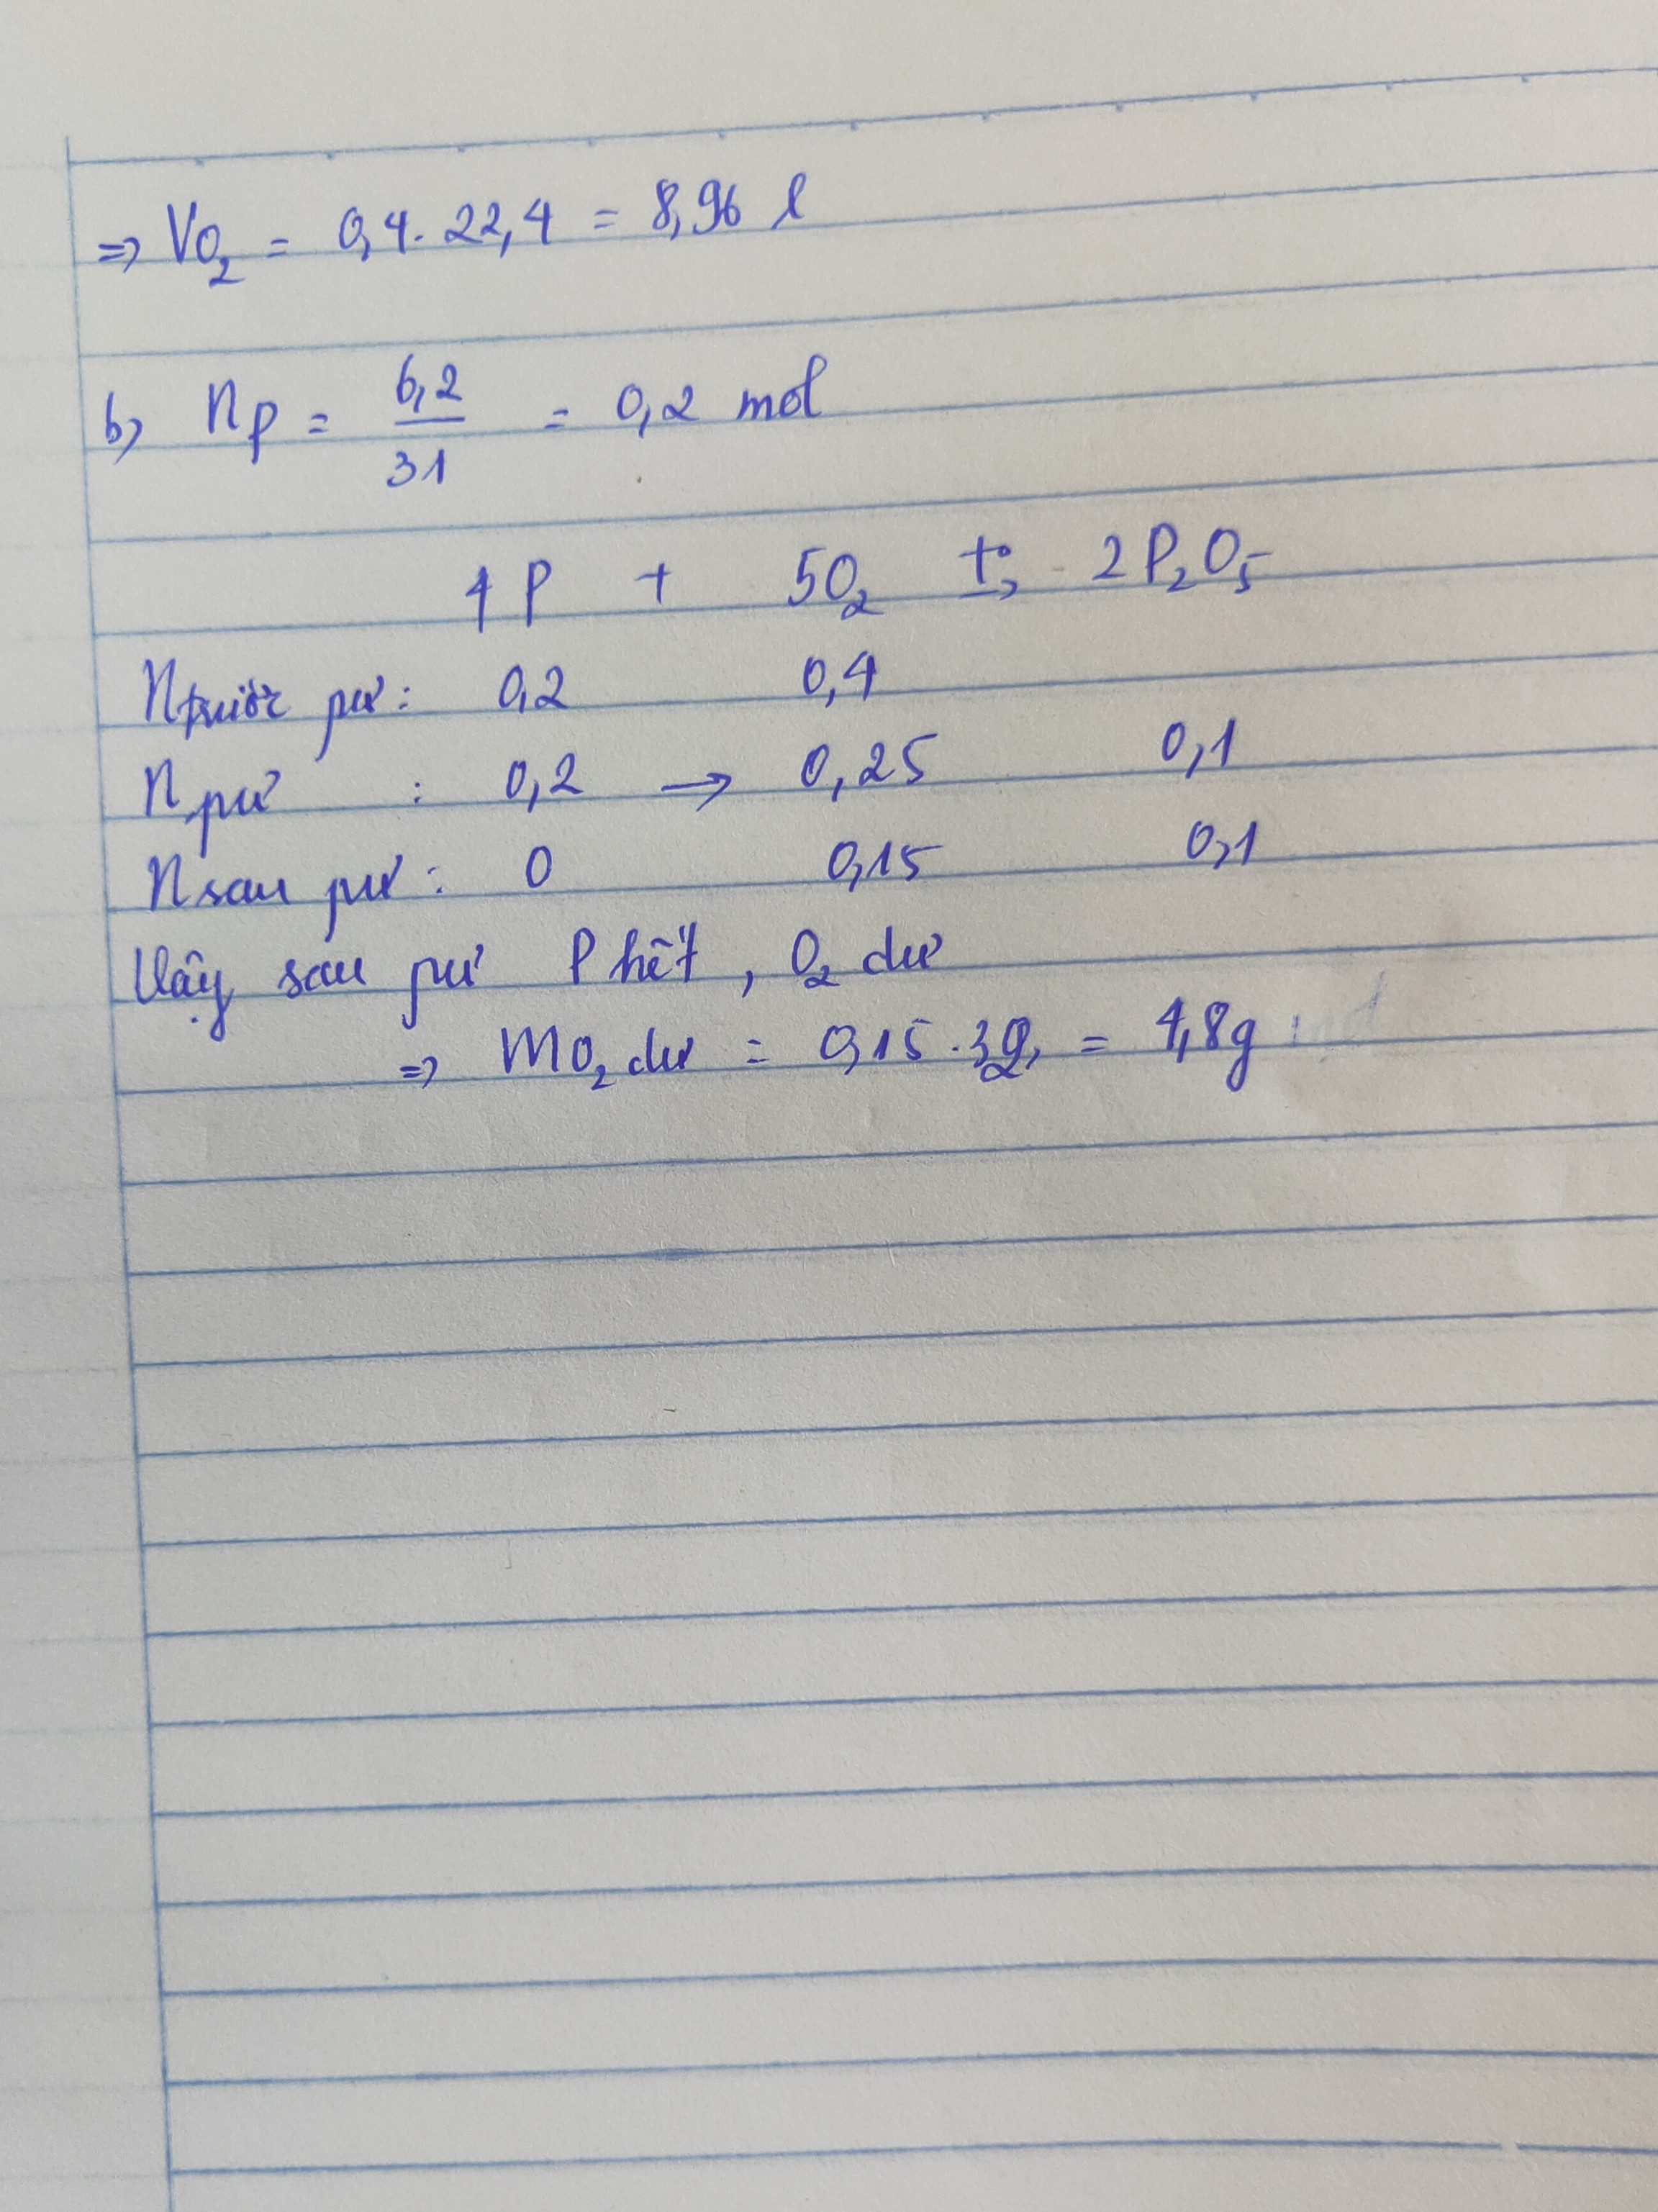 => VO₂ = 0,4 . 22,4 = 8,96 l
b) nP = 6,2/31 = 0,2 mol
4P + 5O₂ t°→ 2P₂O₅
n trước pư: 0,2 0,4
n pư : 0,2 → 0,25 0,1
n sau pư: 0 0,15 0,1
Vậy sau pư P hết, O₂ dư
=> mO₂ dư = 0,15 . 32 = 4,8g